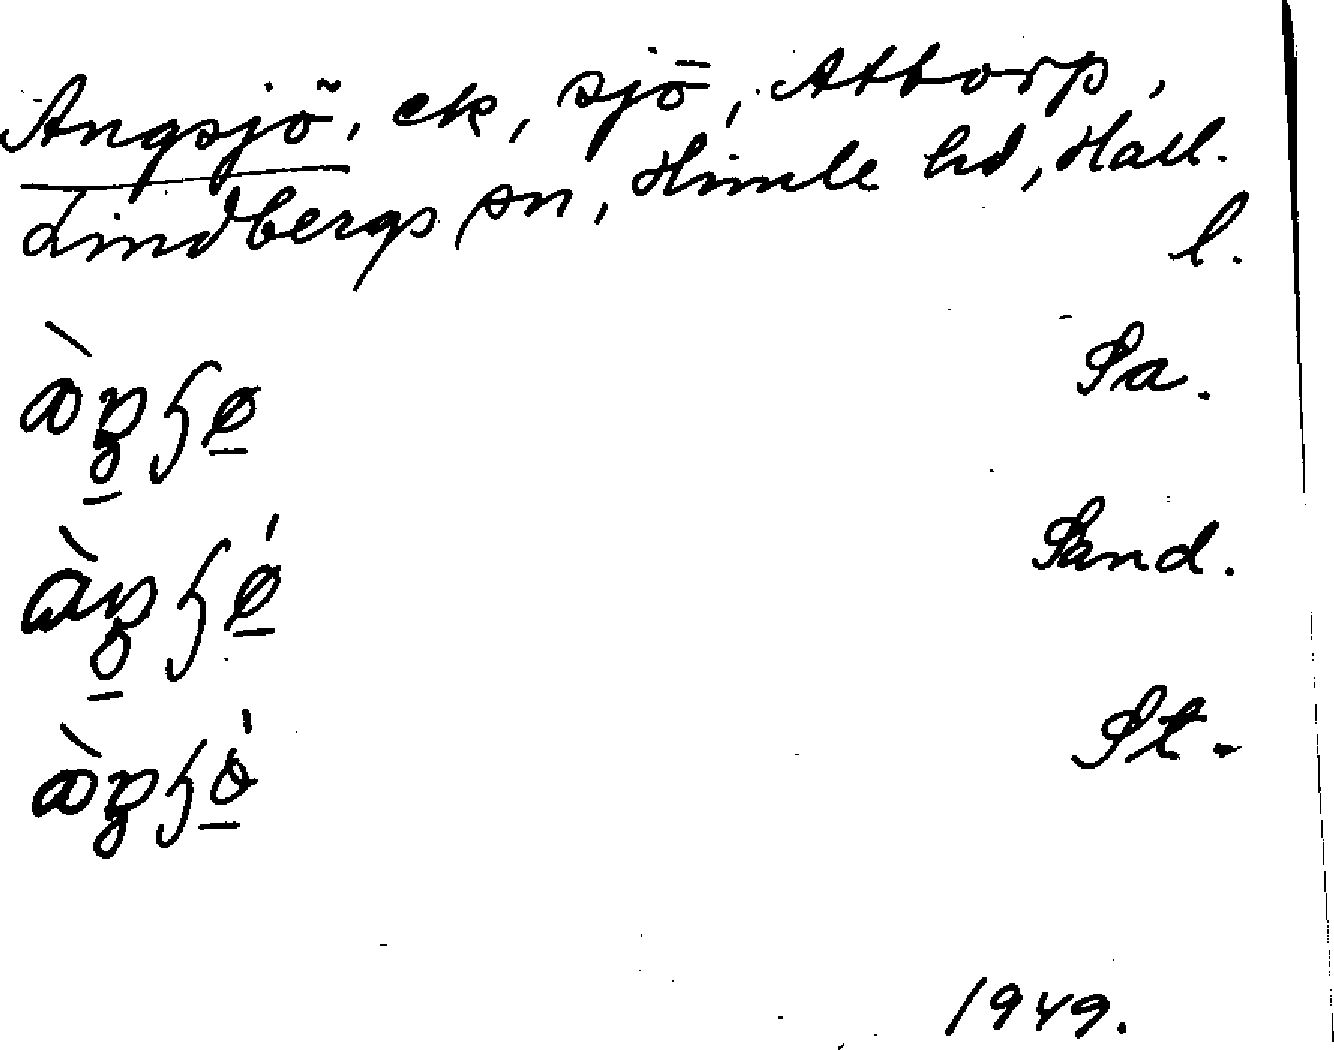 Angsjö, ek, sjö, Attorp,
Lindbergs sn, Himle hd, Hall.
l.
Sa.
Sand.
St.
1949.